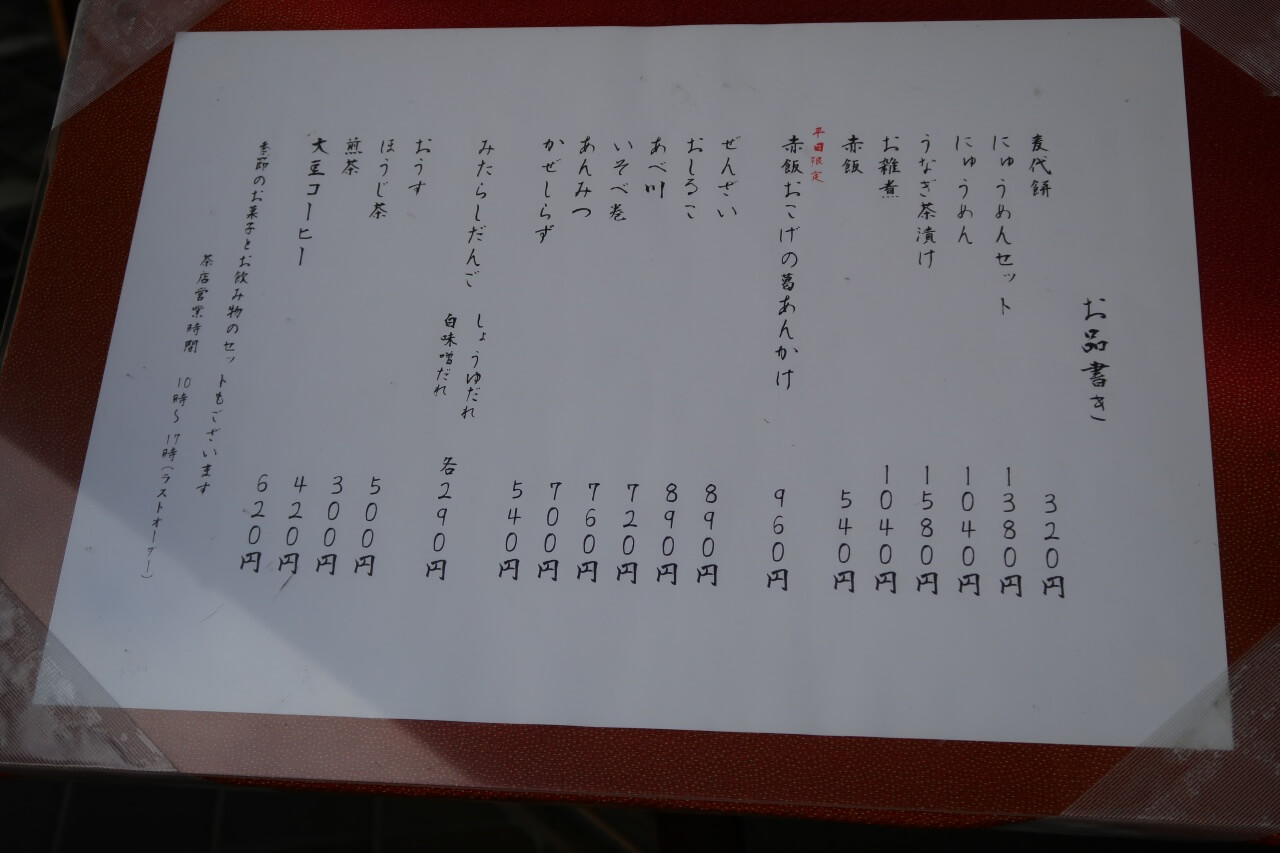 お品書き
麦代餅 320円
にゅうめんセット 1380円
にゅうめん 1040円
うなぎ茶漬け 1580円
お雑煮 1040円
赤飯 540円
平日限定
赤飯おこげの葛あんかけ 960円
ぜんざい 890円
おしるこ 890円
あべ川 720円
いそべ巻 760円
あんみつ 700円
かぜしらず 540円
みたらしだんご しょうゆだれ
白味噌だれ 各290円
おうす 500円
ほうじ茶 300円
煎茶 420円
大豆コーヒー 620円
季節のお菓子とお飲み物のセットもございます
茶店営業時間 10時〜17時(ラストオーダー)